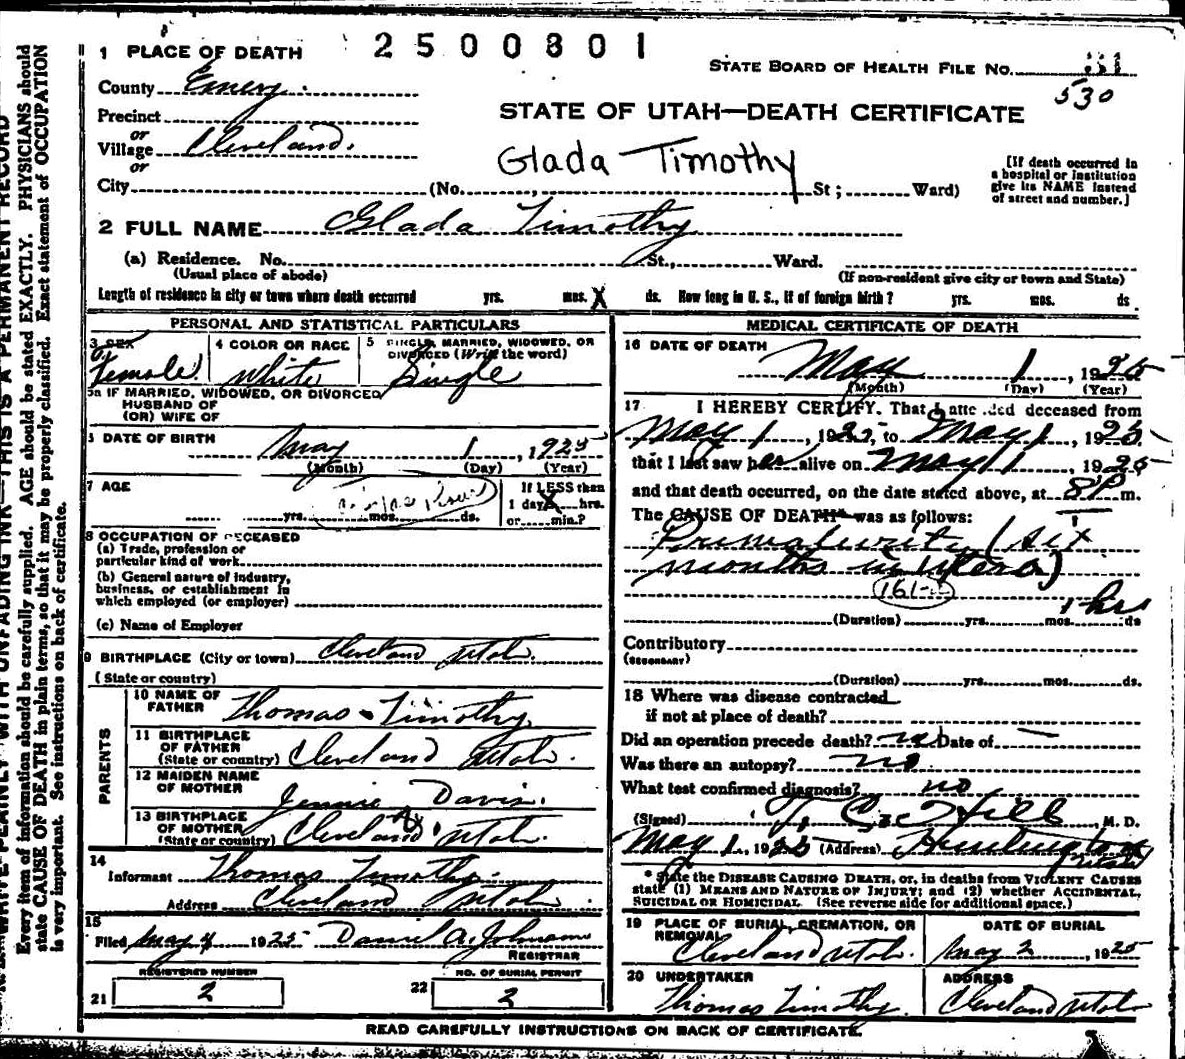 2500801
1 PLACE OF DEATH
STATE BOARD OF HEALTH FILE No. 31
530
County Emery.
STATE OF UTAH—DEATH CERTIFICATE
Precinct
or
Village Cleveland.
or
Glada Timothy
[If death occurred in
a hospital or institution
give its NAME instead
of street and number.]
City (No. , St; Ward)
2 FULL NAME Glada Timothy
(a) Residence. No. St., Ward.
(Usual place of abode) (If non-resident give city or town and State)
Length of residence in city or town where death occurred yrs. mos. X ds. How long in U. S., if of foreign birth? yrs. mos. ds
PERSONAL AND STATISTICAL PARTICULARS
3 SEX
Female
4 COLOR OR RACE
White
5 SINGLE, MARRIED, WIDOWED, OR
DIVORCED (Write the word)
Single
5a IF MARRIED, WIDOWED, OR DIVORCED
HUSBAND OF
(OR) WIFE OF
DATE OF BIRTH
May 1, 1925
(Month) (Day) (Year)
7 AGE
yrs. mos. ds.
If LESS than
1 day X hrs.
or min.?
8 OCCUPATION OF DECEASED
(a) Trade, profession or
particular kind of work
(b) General nature of industry,
business, or establishment in
which employed (or employer)
(c) Name of Employer
9 BIRTHPLACE (City or town) Cleveland Utah.
(State or country)
PARENTS
10 NAME OF
FATHER Thomas Timothy
11 BIRTHPLACE
OF FATHER
(State or country) Cleveland Utah.
12 MAIDEN NAME
OF MOTHER Jennie Davis.
13 BIRTHPLACE
OF MOTHER
(State or country) Cleveland Utah.
14
Informant Thomas Timothy.
Address Cleveland Utah.
15
Filed May 4 1925 Daniel A. Johnson
REGISTRAR
REGISTERED NUMBER
21 2
NO. OF BURIAL PERMIT
22 2
MEDICAL CERTIFICATE OF DEATH
16 DATE OF DEATH
May 1, 1925
(Month) (Day) (Year)
17 I HEREBY CERTIFY. That I attended deceased from
May 1, 1925, to May 1, 1925
that I last saw her alive on May 1, 1925
and that death occurred, on the date stated above, at 8P m.
The CAUSE OF DEATH* was as follows:
Prematurity (six
months in utero)
161-
1 hrs
(Duration) yrs. mos. ds
Contributory
(SECONDARY)
(Duration) yrs. mos. ds.
18 Where was disease contracted
if not at place of death?
Did an operation precede death? no Date of —
Was there an autopsy? no
What test confirmed diagnosis? no
(Signed) T. C. Hill, M. D.
May 1, 1925 (Address) Huntington
Utah
* State the DISEASE CAUSING DEATH, or, in deaths from VIOLENT CAUSES
state (1) MEANS AND NATURE OF INJURY; and (2) whether ACCIDENTAL,
SUICIDAL OR HOMICIDAL. (See reverse side for additional space.)
19 PLACE OF BURIAL, CREMATION, OR
REMOVAL
Cleveland Utah.
DATE OF BURIAL
May 2, 1925
20 UNDERTAKER
Thomas Timothy.
ADDRESS
Cleveland Utah
READ CAREFULLY INSTRUCTIONS ON BACK OF CERTIFICATE.
WRITE PLAINLY WITH UNFADING INK—THIS IS A PERMANENT RECORD
Every item of information should be carefully supplied. AGE should be stated EXACTLY. PHYSICIANS should
state CAUSE OF DEATH in plain terms, so that it may be properly classified. Exact statement of OCCUPATION
is very important. See instructions on back of certificate.